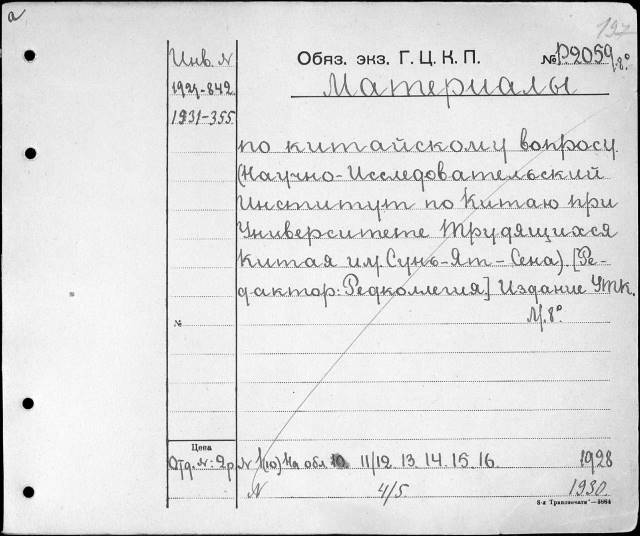 а
197
Инв. N
Обяз. экз. Г. Ц. К. П.
№ Р2059
1.8°
1929-842
Материалы
1931-355
по китайскому вопросу.
(Научно-Исследовательский
Институт по Китаю при
Университете Трудящихся
Китая им. Сунь-Ят-Сена). [Ре-
дактор: Редколлегия] Издание УТК.
М. 8°.
№
Цена
Отд. N: 2р
N 1(10) На обл. 10. 11/12. 13. 14. 15. 16. 1928
N 4/5. 1930.
8-я „Транспечати“—5864